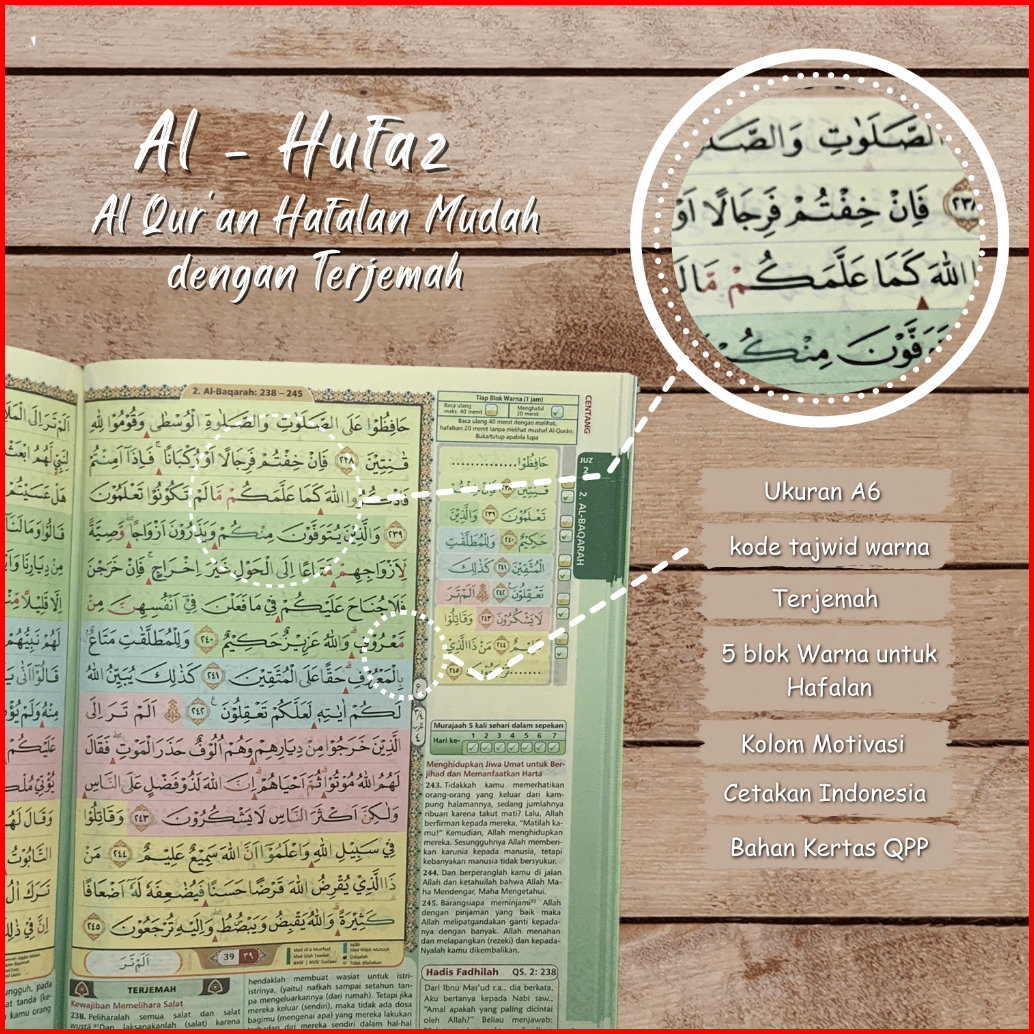 Al - Hufaz
Al Qur'an Hafalan Mudah
dengan Terjemah
Ukuran A6
kode tajwid warna
Terjemah
5 blok Warna untuk
Hafalan
Kolom Motivasi
Cetakan Indonesia
Bahan Kertas QPP
2. Al-Baqarah: 238 – 245
حَافِظُوْا عَلَى الصَّلَوٰتِ وَالصَّلٰوةِ الْوُسْطٰى وَقُوْمُوْا لِلّٰهِ
قٰنِتِيْنَ ٢٣٨ فَاِنْ خِفْتُمْ فَرِجَالًا اَوْ رُكْبَانًا ۚ فَاِذَآ اَمِنْتُمْ
فَاذْكُرُوا اللّٰهَ كَمَا عَلَّمَكُمْ مَّا لَمْ تَكُوْنُوْا تَعْلَمُوْنَ
٢٣٩ وَالَّذِيْنَ يُتَوَفَّوْنَ مِنْكُمْ وَيَذَرُوْنَ اَزْوَاجًاۖ وَّصِيَّةً
لِّاَزْوَاجِهِمْ مَّتَاعًا اِلَى الْحَوْلِ غَيْرَ اِخْرَاجٍ ۚ فَاِنْ خَرَجْنَ
فَلَا جُنَاحَ عَلَيْكُمْ فِيْ مَا فَعَلْنَ فِيْٓ اَنْفُسِهِنَّ مِنْ
مَّعْرُوْفٍۗ وَاللّٰهُ عَزِيْزٌ حَكِيْمٌ ٢٤٠ وَلِلْمُطَلَّقٰتِ مَتَاعٌ ۢ
بِالْمَعْرُوْفِۗ حَقًّا عَلَى الْمُتَّقِيْنَ ٢٤١ كَذٰلِكَ يُبَيِّنُ اللّٰهُ
لَكُمْ اٰيٰتِهٖ لَعَلَّكُمْ تَعْقِلُوْنَ ٢٤٢ ۞ اَلَمْ تَرَ اِلَى
الَّذِيْنَ خَرَجُوْا مِنْ دِيَارِهِمْ وَهُمْ اُلُوْفٌ حَذَرَ الْمَوْتِۖ فَقَالَ
لَهُمُ اللّٰهُ مُوْتُوْاۗ ثُمَّ اَحْيَاهُمْۗ اِنَّ اللّٰهَ لَذُوْ فَضْلٍ عَلَى النَّاسِ
وَلٰكِنَّ اَكْثَرَ النَّاسِ لَا يَشْكُرُوْنَ ٢٤٣ وَقَاتِلُوْا
فِيْ سَبِيْلِ اللّٰهِ وَاعْلَمُوْٓا اَنَّ اللّٰهَ سَمِيْعٌ عَلِيْمٌ ٢٤٤ مَنْ
ذَا الَّذِيْ يُقْرِضُ اللّٰهَ قَرْضًا حَسَنًا فَيُضٰعِفَهٗ لَهٗٓ اَضْعَافًا
كَثِيْرَةً ۗ وَاللّٰهُ يَقْبِضُ وَيَبْصُۣطُۖ وَاِلَيْهِ تُرْجَعُوْنَ ٢٤٥
اَلَمْ تَرَ
39 ٣٩
Tiap Blok Warna (1 jam)
Baca ulang maks. 40 menit
Menghafal 20 menit
Baca ulang 40 menit dengan melihat,
hafalkan 20 menit tanpa melihat mushaf Al-Qurán.
Buka/tutup apabila lupa
CENTANG
JUZ
2
2. AL-BAQARAH
حَافِظُوْا..............
قٰنِتِيْنَ ٢٣٨ فَاِنْ خِفْتُمْ
تَعْلَمُوْنَ ٢٣٩ وَالَّذِيْنَ
حَكِيْمٌ ٢٤٠ وَلِلْمُطَلَّقٰتِ
الْمُتَّقِيْنَ ٢٤١ كَذٰلِكَ
تَعْقِلُوْنَ ٢٤٢ اَلَمْ تَرَ
لَا يَشْكُرُوْنَ ٢٤٣ وَقَاتِلُوْا
٢٤٤ مَنْ ذَا الَّذِيْ
٢٤٥
Murajaah 5 kali sehari dalam sepekan
Hari ke- 1 2 3 4 5 6 7
Menghidupkan Jiwa Umat untuk Ber-
jihad dan Memanfaatkan Harta
243. Tidakkah kamu memerhatikan
orang-orang yang keluar dari kam-
pung halamannya, sedang jumlahnya
ribuan karena takut mati? Lalu, Allah
berfirman kepada mereka, "Matilah ka-
mu!" Kemudian, Allah menghidupkan
mereka. Sesungguhnya Allah memberi-
kan karunia kepada manusia, tetapi
kebanyakan manusia tidak bersyukur.
244. Dan berperanglah kamu di jalan
Allah dan ketahuilah bahwa Allah Ma-
ha Mendengar, Maha Mengetahui.
245. Barangsiapa meminjami Allah
dengan pinjaman yang baik maka
Allah melipatgandakan ganti kepada-
nya dengan banyak. Allah menahan
dan melapangkan (rezeki) dan kepada-
Nyalah kamu dikembalikan.
Hadis Fadhilah QS. 2: 238
Dari Ibnu Mas'ud r.a., dia berkata,
Aku bertanya kepada Nabi saw.,
"Amal apakah yang paling dicintai
oleh Allah?" Beliau menjawab:
TERJEMAH
Kewajiban Memelihara Salat
238. Peliharalah semua salat dan salat
wusṭā. Dan laksanakanlah (salat) karena
hendaklah membuat wasiat untuk istri-
istrinya, (yaitu) nafkah sampai setahun tan-
pa mengeluarkannya (dari rumah). Tetapi jika
mereka keluar (sendiri), maka tidak ada dosa
bagimu (mengenai apa) yang mereka lakukan
terhadap diri mereka sendiri dalam hal-hal